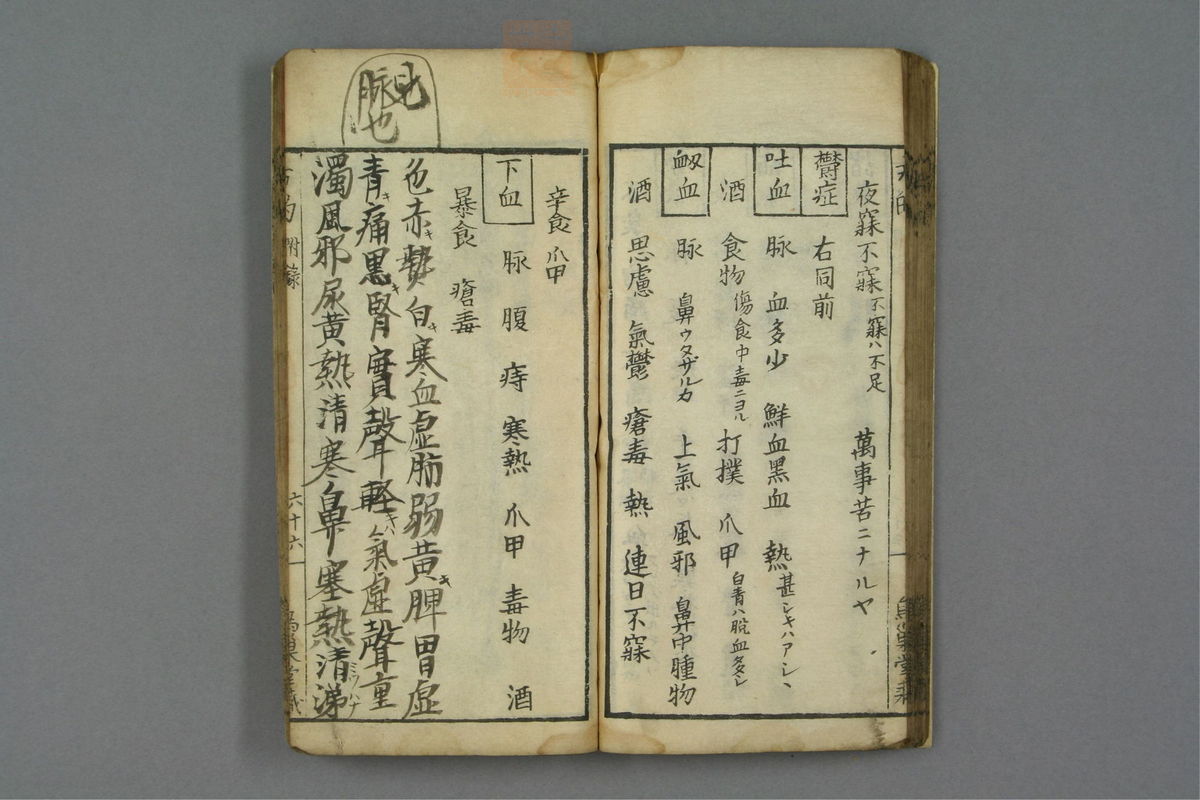 夜寐不寐 不寐ハ不足 萬事苦ニナルヤ
鬱症 右同前
吐血 脉 血多少 鮮血黒血 熱 甚シキハアシヽ
酒 食物 傷食中毒ニヨル 打撲 爪甲 白青ハ脱血多シ
衂血 脉 鼻ウタザルカ 上氣 風邪 鼻中腫物
酒 思慮 氣鬱 瘡毒 熱 連日不寐
辛食 爪甲
下血 脉 腹 痔 寒熱 爪甲 毒物 酒
暴食 瘡毒
見脉也
色赤キ熱白キ寒血虚肺弱黄キ脾胃虚
青キ痛黒キ腎實聲軽キハ氣虚聲重
濁風邪尿黄熱清寒鼻塞熱清涕ミツハナ
附録
六十六